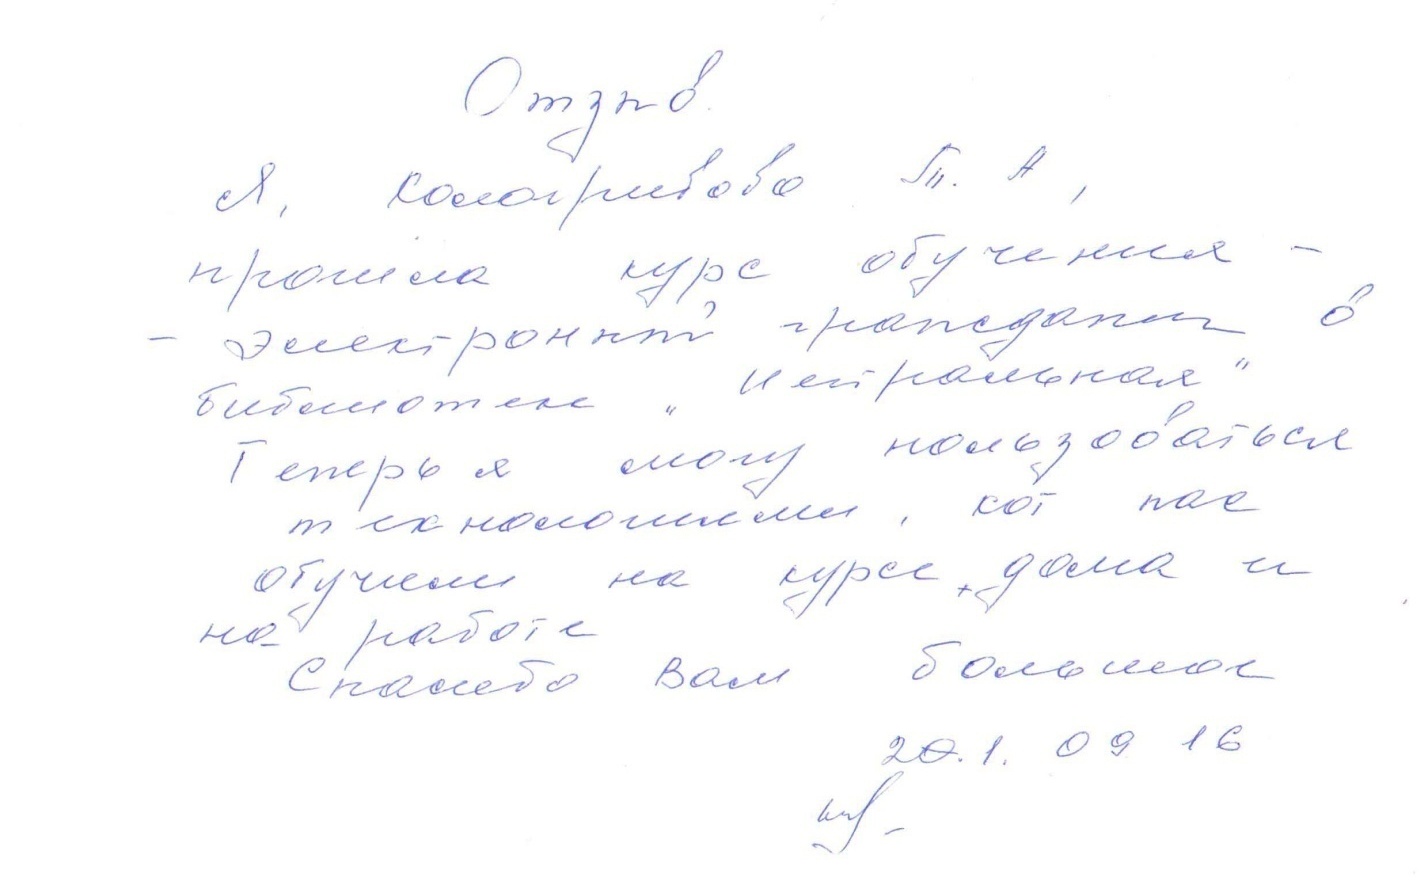 Отзыв.
Я, Кологривова Т. А,
прошла курс обучения -
- электронный гражданин в
библиотеке "Центральная"
Теперь я могу пользоваться
технологиями, кот нас
обучили на курсе, дома и
на работе
Спасибо Вам большое
20.1. 09 16